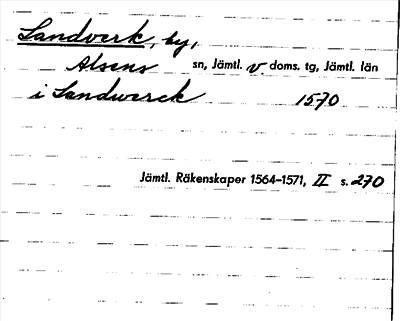 Landverk, by,
Alsens sn, Jämtl. v. doms. tg, Jämtl. län
i Landwerck 1570
Jämtl. Räkenskaper 1564-1571, II s. 270